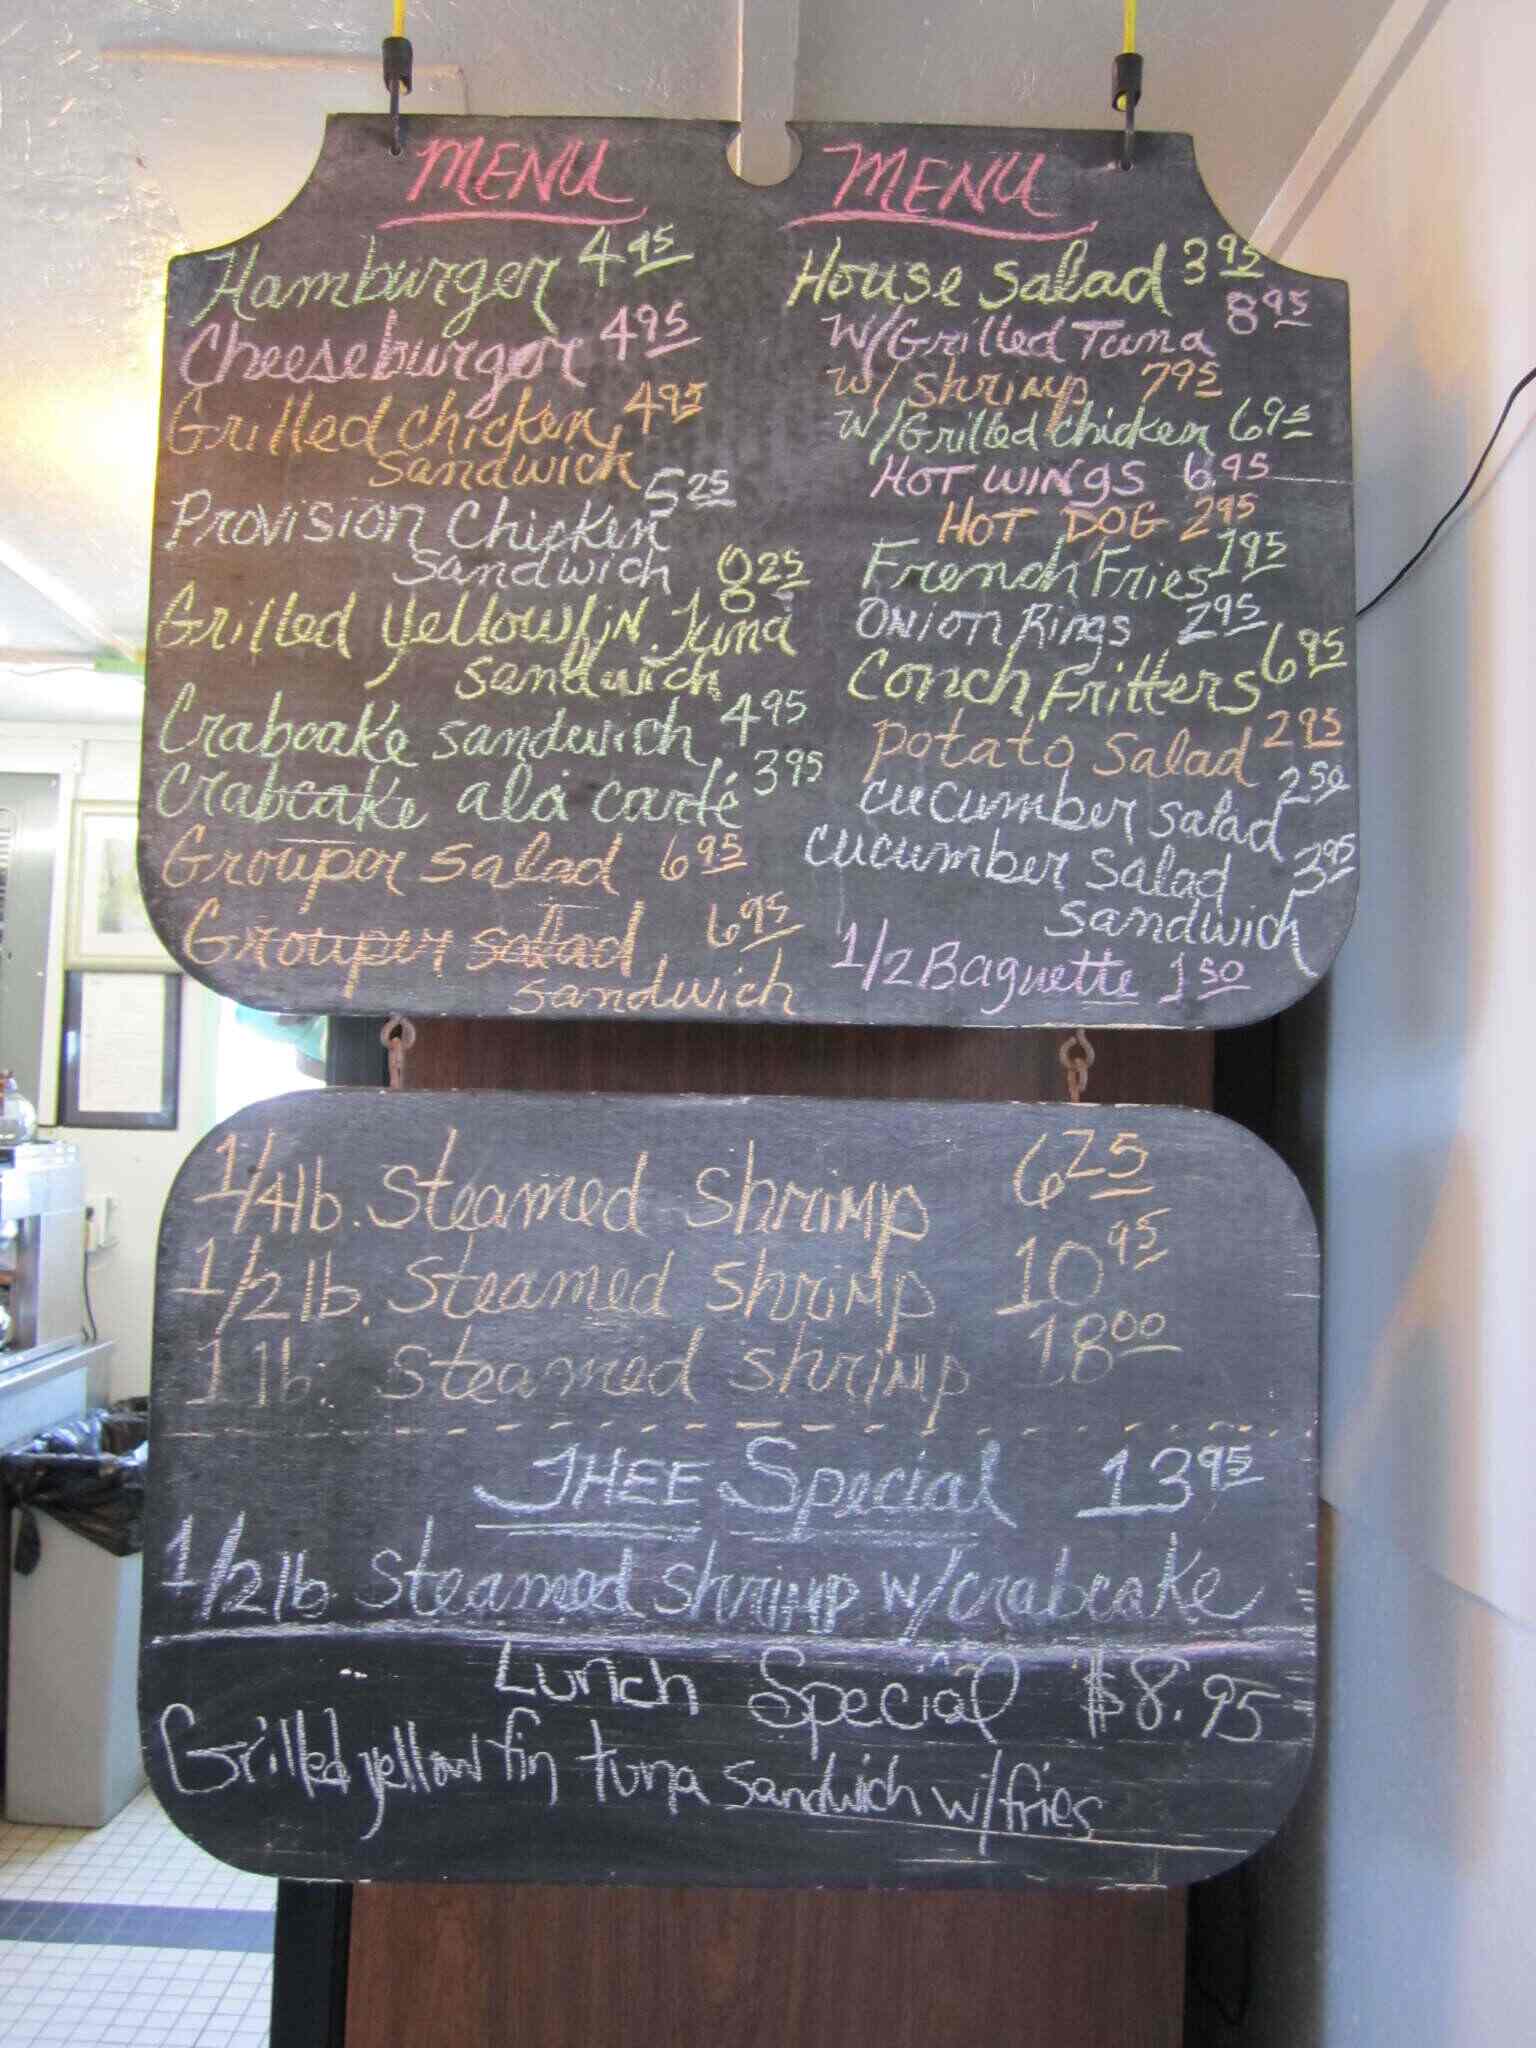 MENU
Hamburger 4.95
Cheeseburger 4.95
Grilled chicken 4.95
sandwich
Provision Chicken 5.25
sandwich
Grilled yellowfin Tuna 8.25
sandwich
Crabcake sandwich 4.95
Crabcake alá carté 3.95
Grouper salad 6.95
Grouper salad 6.95
sandwich
MENU
House salad 3.95
W/Grilled Tuna 8.95
w/ shrimp 7.95
w/Grilled chicken 6.95
HOT WINGS 6.95
HOT DOG 2.95
French Fries 1.95
Onion Rings 2.95
Conch Fritters 6.95
potato salad 2.95
cucumber salad 2.50
cucumber salad 3.95
sandwich
1/2 Baguette 1.50
1/4 lb. steamed shrimp 6.25
1/2 lb. steamed shrimp 10.95
1 lb. steamed shrimp 18.00
THEE Special 13.95
1/2 lb. steamed shrimp w/crabcake
Lunch Special $8.95
Grilled yellow fin tuna sandwich w/fries